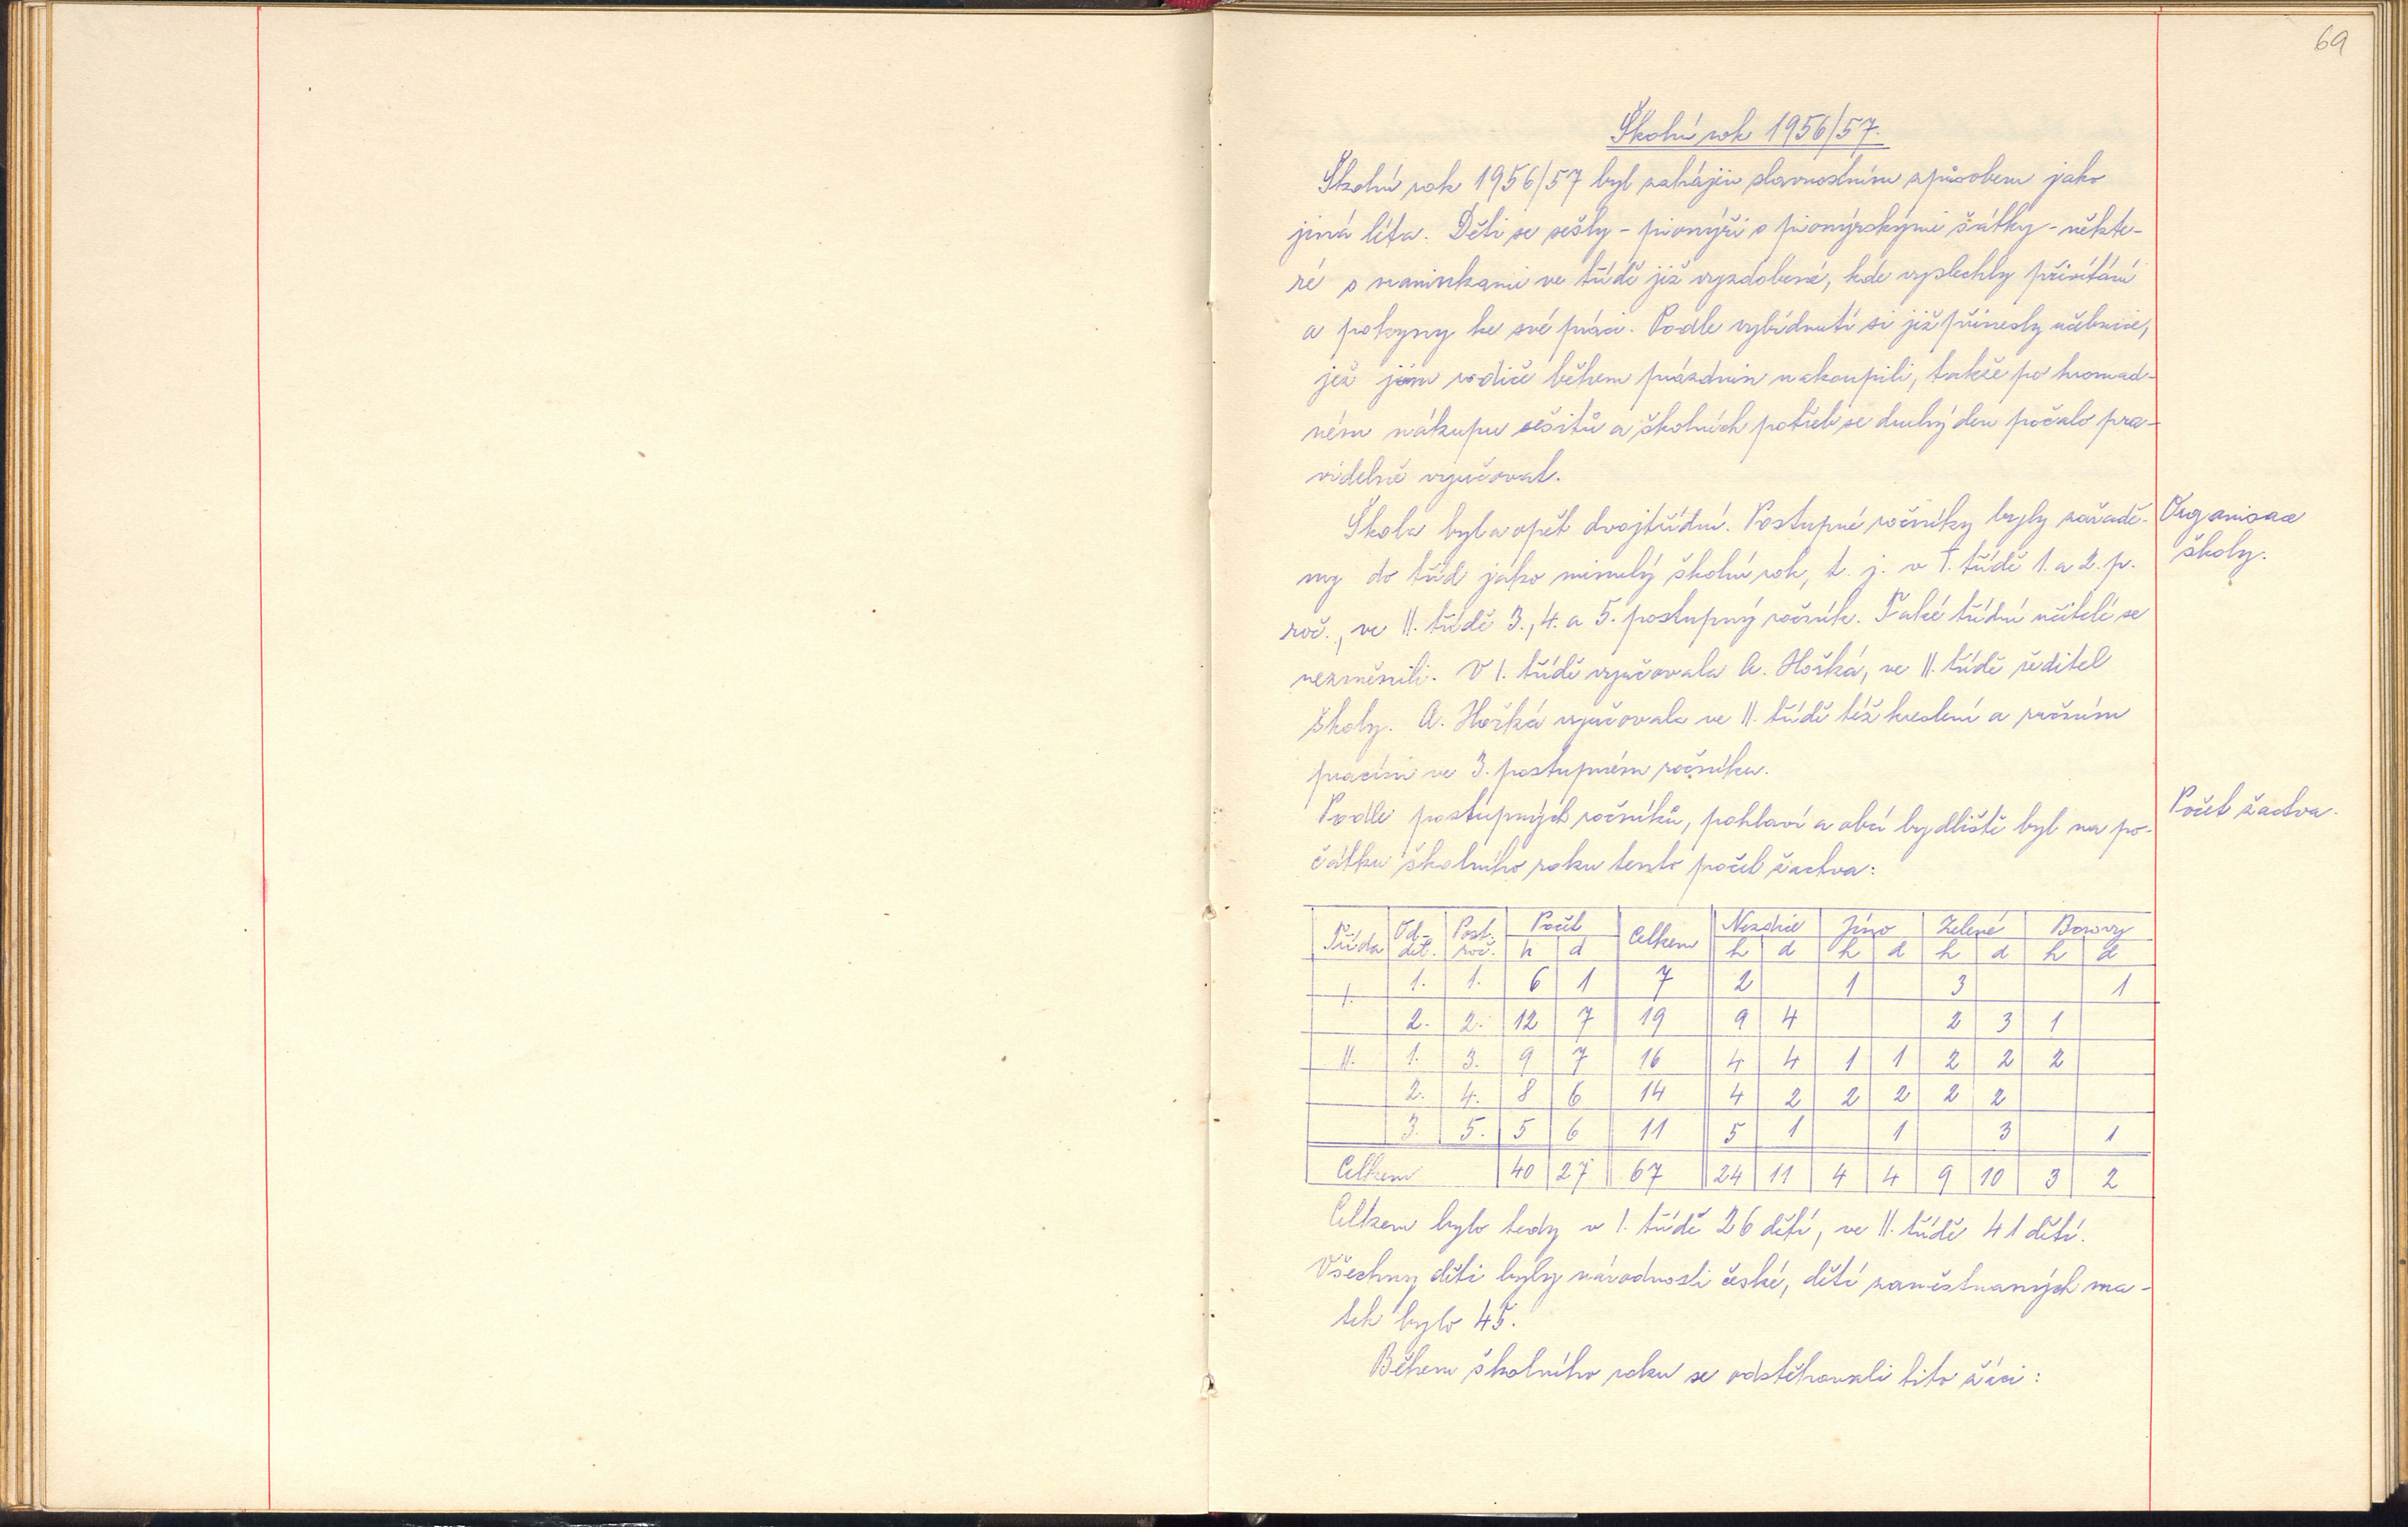 69
Školní rok 1956/57.
Školní rok 1956/57 byl zahájen slavnostním způsobem jako
jiná léta. Děti se sešly - pionýři s pionýrskými šátky - někte-
ré s maminkami ve třídě již vyzdobené, kde vyslechly přivítání
a pokyny ke své práci. Podle vybídnutí si již přinesly učebnice,
jež jim rodiče během prázdnin nakoupili, takže po hromad-
ném nákupu sešitů a školních potřeb se druhý den počalo pra-
videlně vyučovat.
Škola byla opět dvojtřídní. Postupné ročníky byly zařadě-
ny do tříd jako minulý školní rok, t. j. v I. třídě 1. a 2. p.
roč., ve II. třídě 3., 4. a 5. postupný ročník. Také třídní učitelé se
nezměnili. V I. třídě vyučovala A. Hořká, ve II. třídě ředitel
školy. A. Hořká vyučovala ve II. třídě též kreslení a ručním
pracím ve 3. postupném ročníku.
Organisace
školy.
Podle postupných ročníků, pohlaví a obcí bydliště byl na po-
čátku školního roku tento počet žactva:
Počet žactva.
Třída Od- Post. Počet Celkem Nezdice Jíno Zelené Borovy
děl. roč. h d h d h d h d h d
I. 1. 1. 6 1 7 2 1 3 1
2. 2. 12 7 19 9 4 2 3 1
II. 1. 3. 9 7 16 4 4 1 1 2 2 2
2. 4. 8 6 14 4 2 2 2 2 2
3. 5. 5 6 11 5 1 1 3 1
Celkem 40 27 67 24 11 4 4 9 10 3 2
Celkem bylo tedy v I. třídě 26 dětí, ve II. třídě 41 dětí.
Všechny děti byly národnosti české, dětí zaměstnaných ma-
tek bylo 45.
Během školního roku se odstěhovali tito žáci: